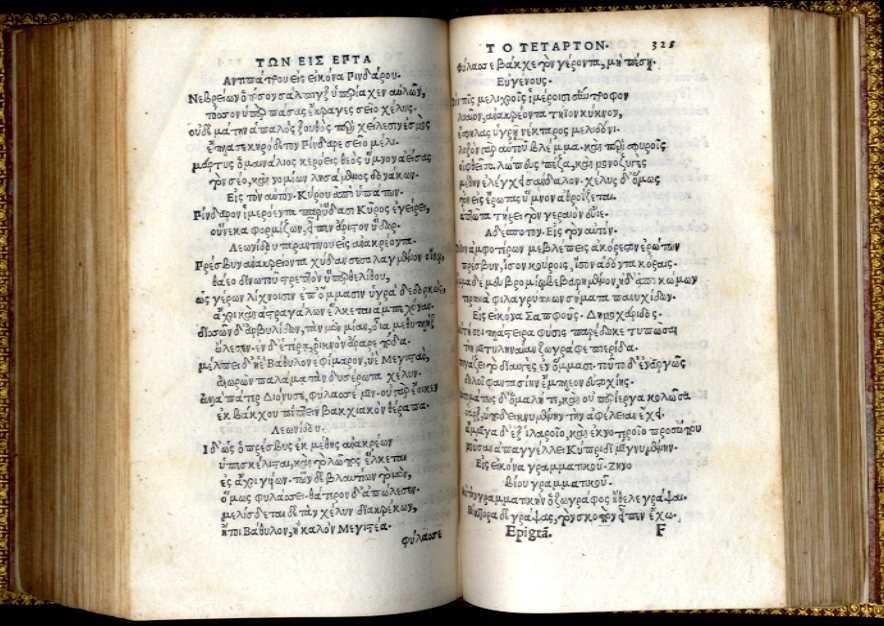 ΤΩΝ ΕΙΣ ΕΡΤΑ
Αντιπάτρου εἰς εἰκόνα Πινδάρου.
Νεβρείων ὁπόσον σάλπιγξ ὑπερίαχεν αὐλῶν,
τόσσον ὑπὲρ πάσας ἔκραγε σεῖο χέλυς.
οὐδὲ μάτην ἁπαλοῖς ξουθὸς περὶ χείλεσιν ἑσμὸς
ἔπλασε κηρόδετον Πίνδαρε σεῖο μέλι.
μάρτυς ὁ μαινάλιος κερόεις θεὸς ὕμνον ἀείσας
τὸν σέο, καὶ νομίων λησάμενος δονάκων.
Εἰς τὸν αὐτόν. Κύρου ἀπὸ ὑπάτων.
Πίνδαρον ἱμερόεντα παρ' ὕδασι Κῦρος ἐγείρει,
οὕνεκα φορμίζων, εἶπεν ἄριστον ὕδωρ.
Λεωνίδου ταραντίνου εἰς ἀνακρέοντα.
Πρέσβυν ἀνακρείοντα χύδαν σεσαλαγμένον οἴνῳ,
θάεο δινωτοῦ στρεπτὸν ὕπερθε λίθου,
ὡς γέρων λίχνοισιν ἐπ' ὄμμασιν ὑγρὰ δεδορκὼς,
ἄχρι καὶ ἀστραγάλων ἕλκεται ἀμπεχόναν.
δισσῶν δ' ἀρβυλίδων, τὰν μὲν μίαν, οἷα μεθυπλὴξ
ὤλεσεν. ἐν δ' ἑτέρᾳ, ῥικνὸν ἄραρε πόδα.
μέλπει δ' ἠὲ Βάθυλον ἐφίμερον, ἠὲ Μεγιστᾶν,
αἰωρῶν παλάμᾳ τὰν δυσέρωτα χέλυν.
ἀλλὰ πάτερ Διόνυσε, φύλασσέ μιν. οὐ γὰρ ἔοικεν
ἐκ βάκχου πίπτειν βακχιακὸν θέραπα.
Λεωνίδου.
Ιδ' ὡς ὁ πρέσβυς ἐκ μέθης ἀνακρέων
ὑπεσκέλισται, καὶ τὸ λῶπος ἕλκεται
ἐς ἄχρι γυίων. τῶν δὲ βλαυτίων τὸ μὲν,
ὅμως φυλάσσει. θάτερον δ' ἀπώλεσεν.
μελίσδεται δὲ τὰν χέλυν διακρέκων,
ἤτοι Βάθυλον, ἢ καλὸν Μεγιστέα.
φύλασσε
ΤΟ ΤΕΤΑΡΤΟΝ. 321
φύλασσε βάκχε τὸν γέροντα, μὴ πέσῃ.
Εὐγένους.
μελιχροῖς ἱμέροισι σύντροφον
ἀνακρέοντα τήϊον κύκνον,
ἔσφηλας ὑγρῇ νέκταρος μεληδόνι.
λοξὸν γὰρ αὐτοῦ βλέμμα. καὶ περὶ σφυροῖς
ῥιφθεῖσα λώπους πέζα, καὶ μονοζυγὲς
μέθην ἐλέγχει σάνδαλον. χέλυς δ' ὅμως
τὸν εἰς ἔρωτας ὕμνον ἀθροίζεται.
ἀπτῶτα τήρει τὸν γεραιὸν
Αδέσποτον. Εἰς τὸν αὐτόν.
ἀμφοτέρων με βλέπεις ἀκόρεστον ἐρώτων
πρέσβυν, ἴσον κούροις, ἶσον ἅδοντα κόραις.
Εἰς εἰκόνα Σαπφοῦς. Δημοχάριδος.
φύσις παρέδωκε τυπῶσαι
τὴν μιτυληναίαν ζωγράφε πιερίδα.
ἐν ὄμμασι. τοῦτο δ' ἐναργῶς
δηλοῖ φαντασίην ἔμπλεον εὐστοχίης.
δ' ὁμαλή τε, καὶ οὐ περίεργα κολῶσα
τὴν ἀφέλειαν ἔχει.
ἄμμιγα δ' ἐξ ἱλαροῖο, καὶ ἐκ νοεροῖο προσώπου
μοῦσαν ἀπαγγέλλει Κύπριδι μιγνυμένην.
Εἰς εἰκόνα γραμματικοῦ. Ζηνο
βίου γραμματικοῦ.
γραμματικὴν ὁ ζωγράφος ἤθελε γράψαι.
Βίκτορα δὲ γράψας, τὸν σκοπὸν εἶπεν ἔχω.
Epigrã. F